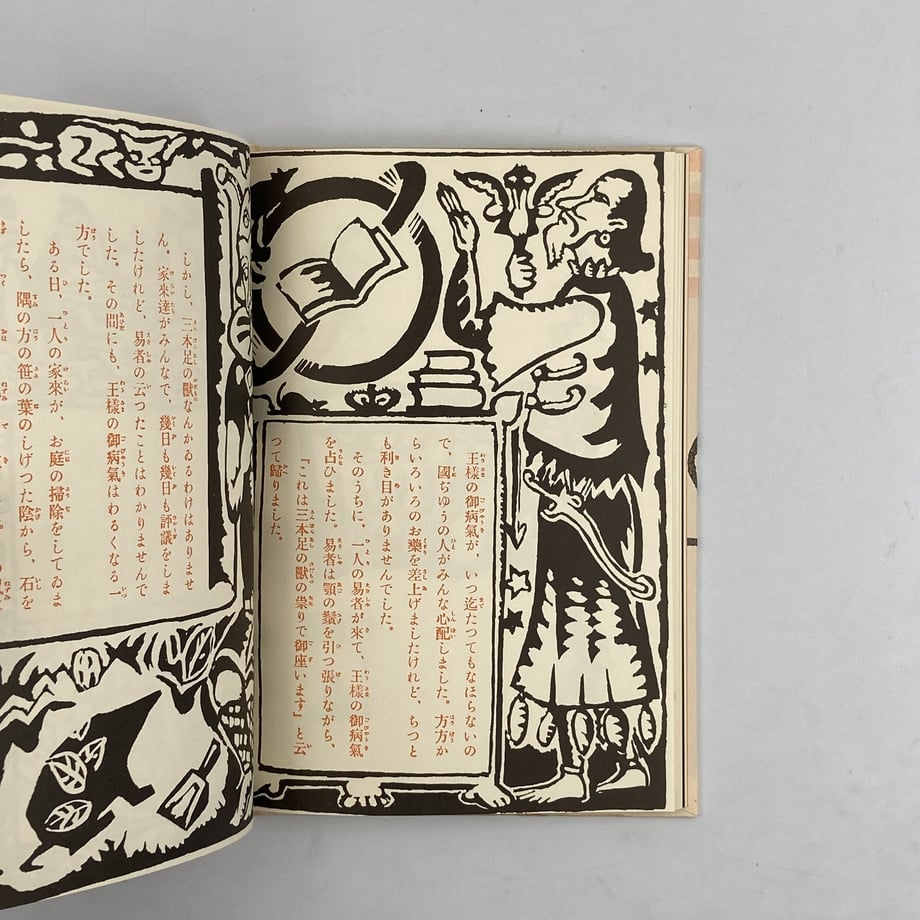 王様の御病氣が、いつ迄たつてもなほらないの
で、國ぢゆうの人がみんな心配しました。方方か
らいろいろのお藥を差上げましたけれど、ちつと
も利き目がありませんでした。
そのうちに、一人の易者が來て、王様の御病氣
を占ひました。易者は顎の鬚を引つ張りながら、
「これは三本足の獸の祟りで御座います」と云
つて歸りました。
しかし、三本足の獸なんかゐるわけはありませ
ん。家來達がみんなで、幾日も幾日も評議をしま
したけれど、易者の云つたことはわかりませんで
した。その間にも、王様の御病氣はわるくなる一
方でした。
ある日、一人の家來が、お庭の掃除をしてゐま
したら、隅の方の笹の葉のしげつた陰から、石を